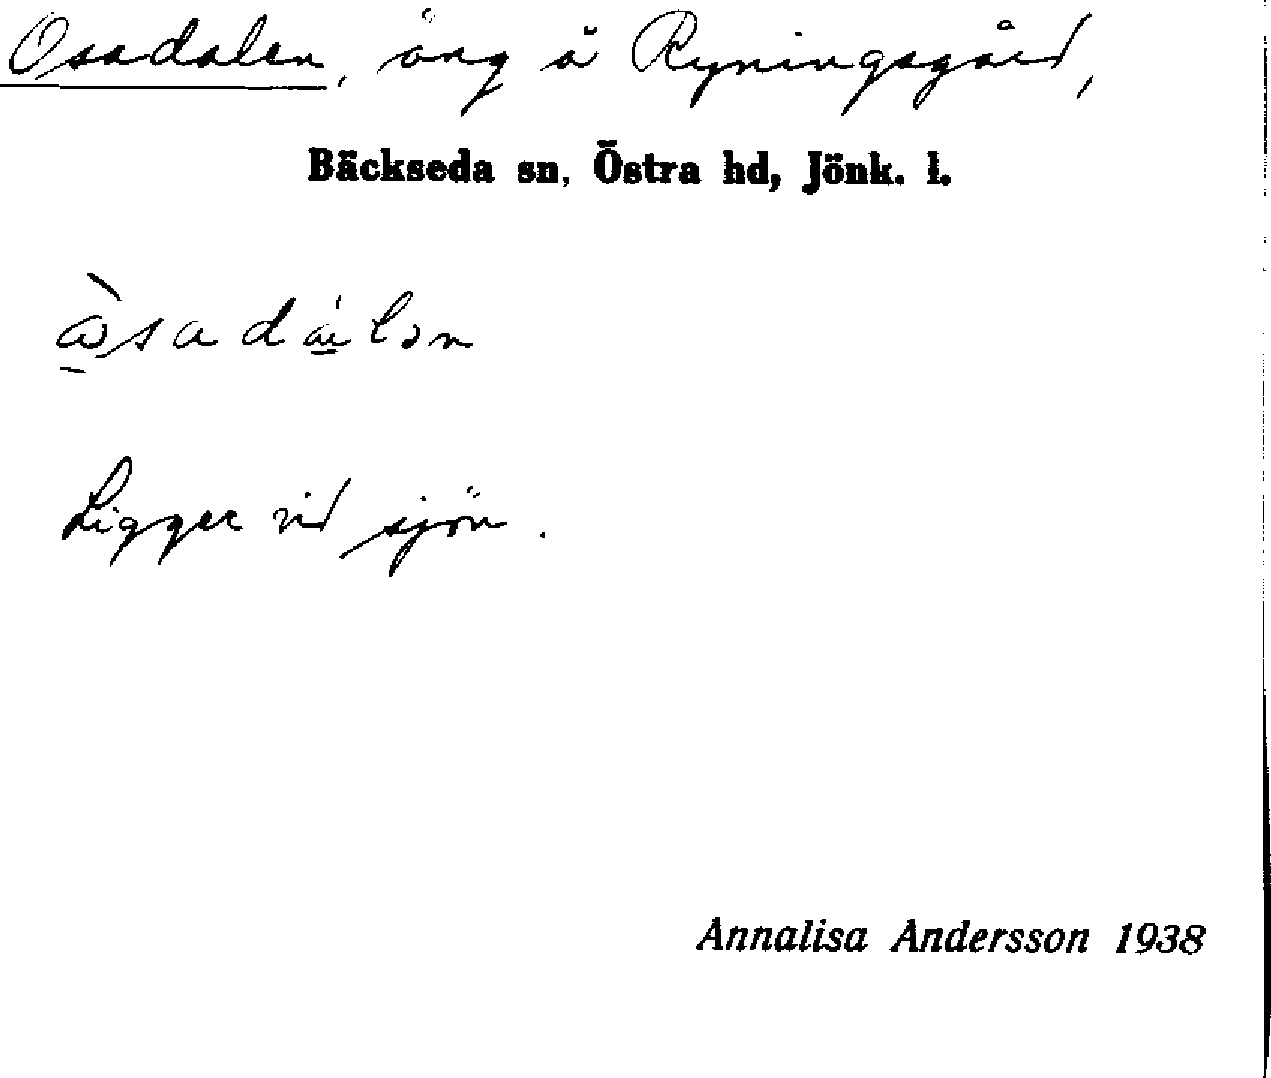 Osadalen, äng å Ryningsgård,
Bäckseda sn, Östra hd, Jönk. l.
Ligger vid sjön.
Annalisa Andersson 1938